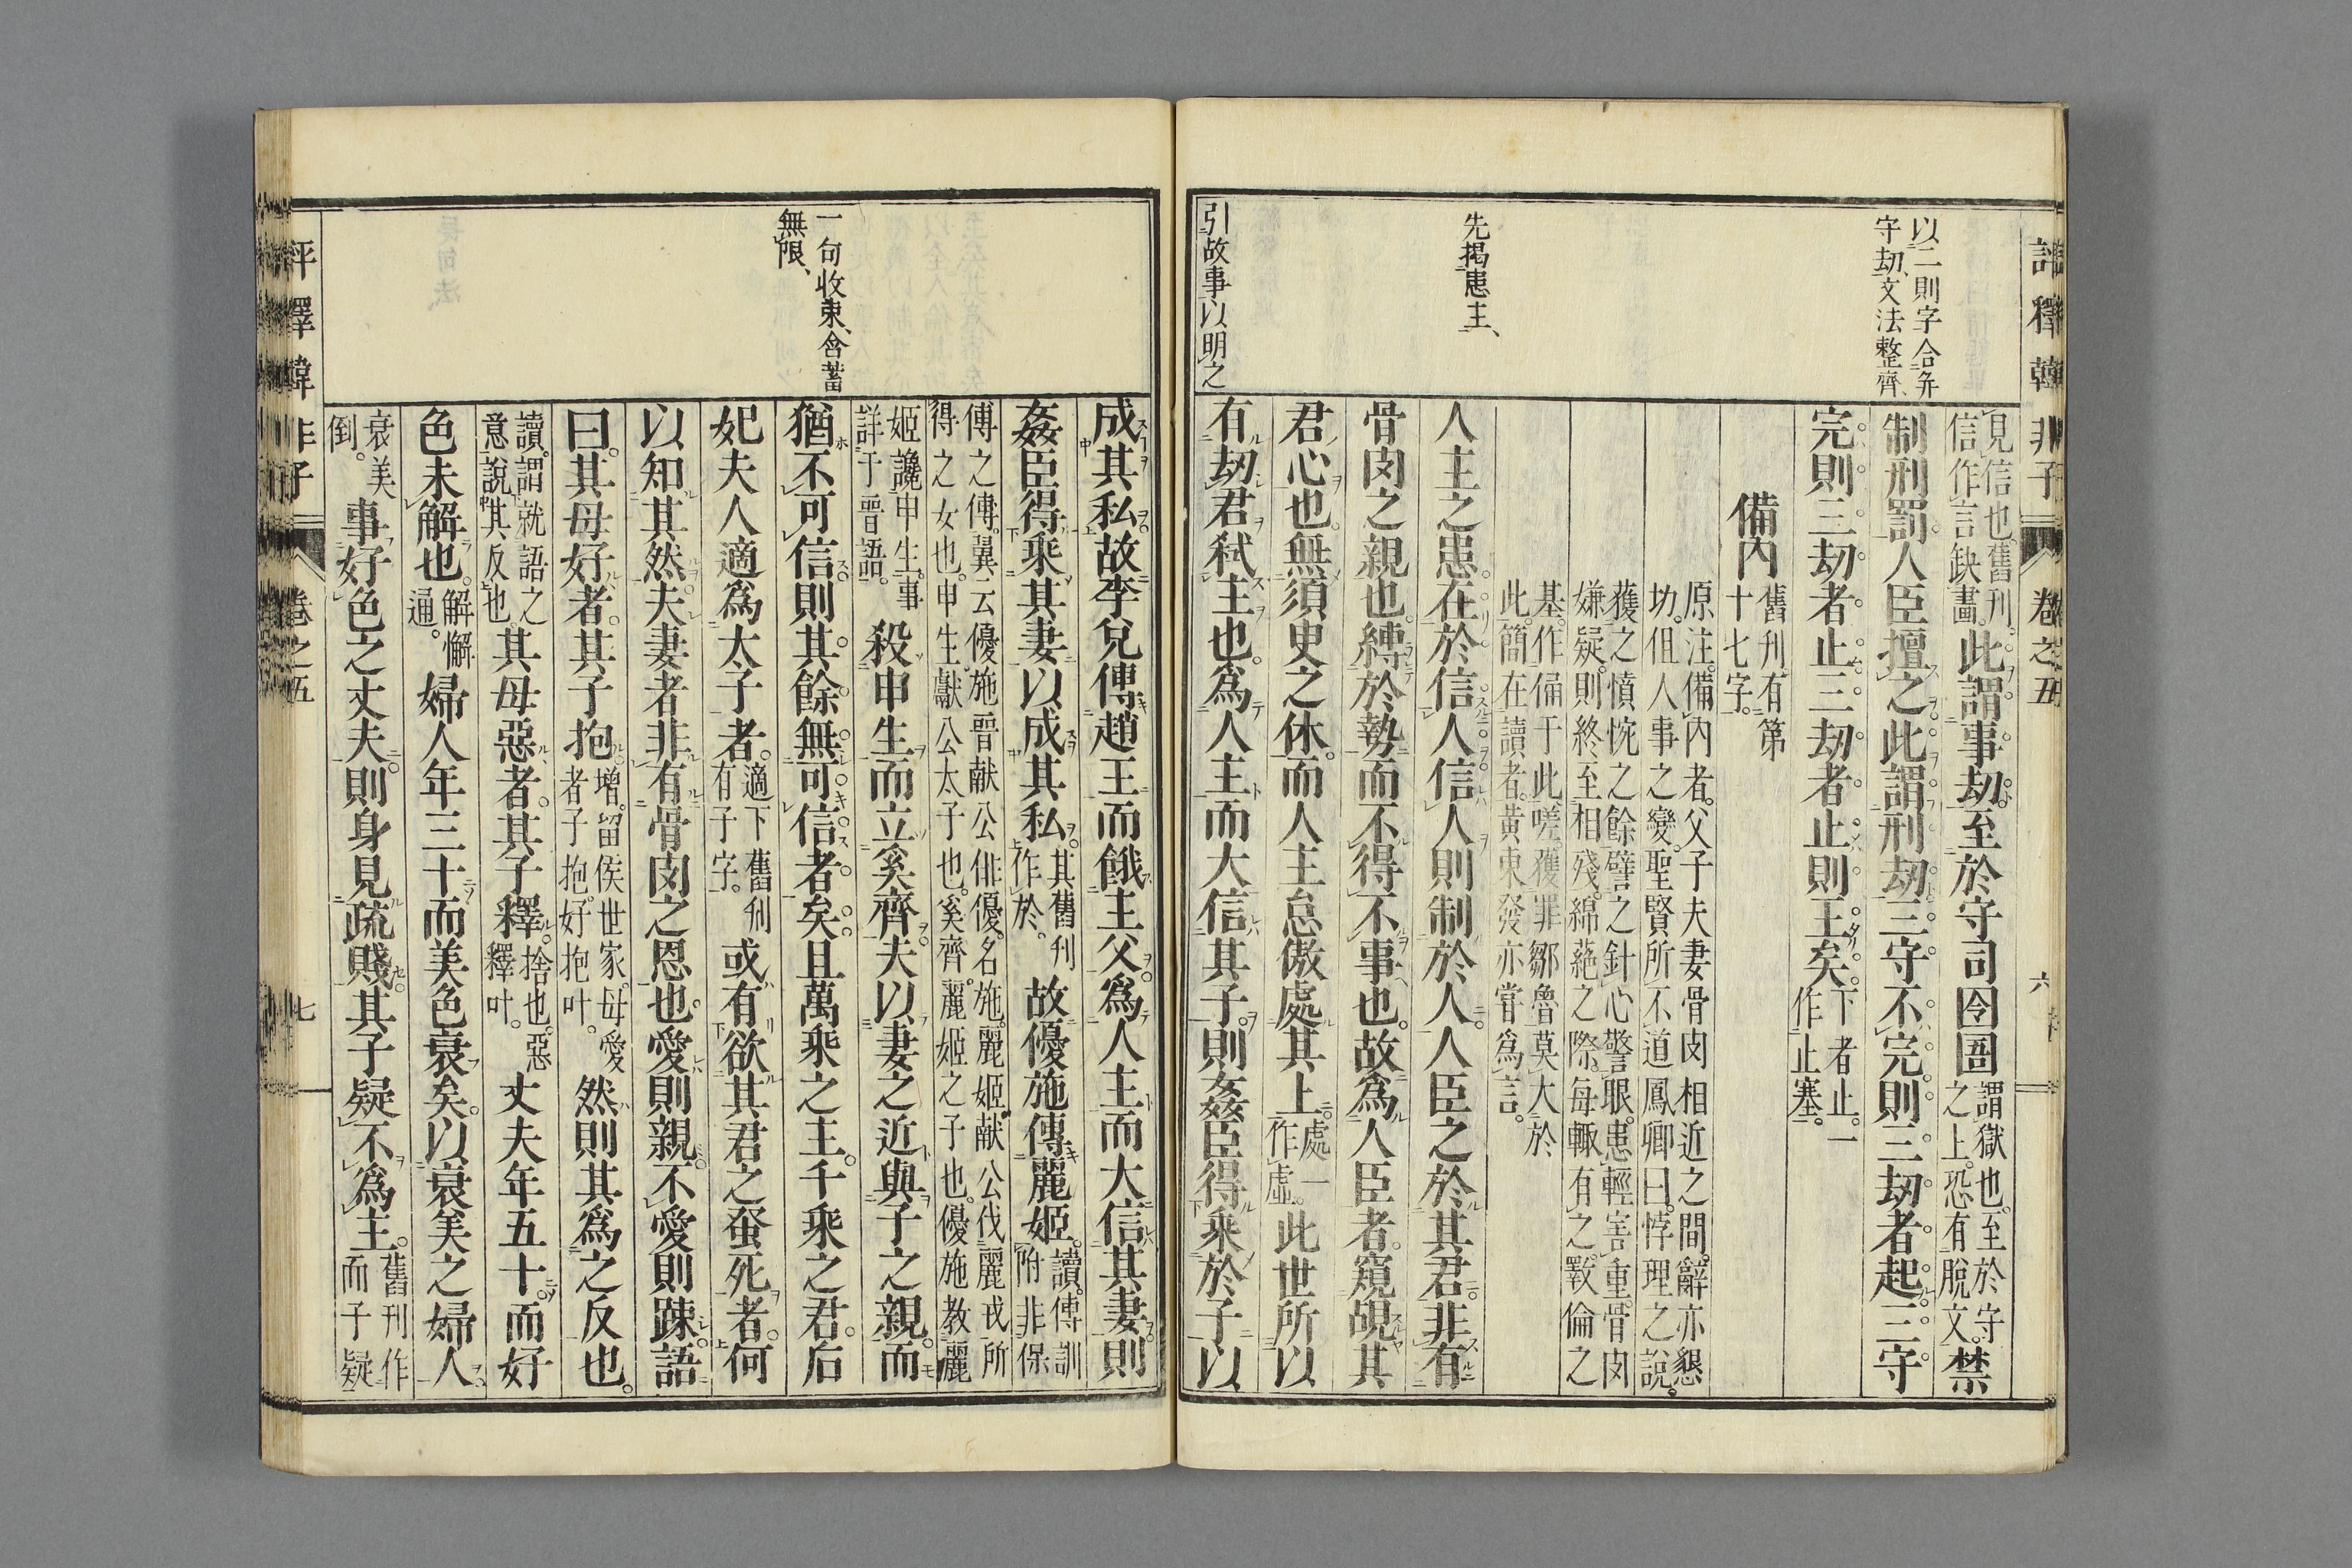 評釋韓非子 卷之五 六
以二則字合弁
守劫文法整齊、
先揭患主、
引故事以明之
見信也舊刊。
信作言缺畫。
此謂事劫。至於守司囹圄
謂獄也。至於守
之上。恐有脫文。
禁
制刑罰人臣擅之此謂刑劫三守不完則三劫者起三守
完則三劫者止三劫者止則王矣。
下者止。一
作止塞。
備內
舊刊有第
十七字。
原注。備內者。父子夫妻骨肉相近之間。辭亦懇
切。但人事之變。聖賢所不道。鳳卿曰。悖理之說。
獲之憤惋之餘譬之針心警眼。患輕害重。骨肉
嫌疑。則終至相殘。綿蕝之際。每輙有之斁倫之
基。作俑于此。嗟獲罪鄒魯莫大於
此。簡在讀者。黃東發亦嘗爲言。
人主之患在於信人信人則制於人。人臣之於其君非有
骨肉之親也。縛於勢而不得不事也。故爲人臣者。窺覘其
君心也。無須臾之休。而人主怠傲處其上。
處一
作虛。
此世所以
有劫君弒主也。爲人主而大信其子。則姦臣得乘於子以
一句收束、含蓄
無限、
成其私故李兌傅趙王而餓主父。爲人主而大信其妻則
姦臣得乘其妻以成其私。
其舊刊
作於。
故優施傅麗姬。
讀。傅訓
附非保
傅之傅。翼云優施晋献公俳優。名施。麗姬献公伐麗戎所
得之女也。申生。獻公太子也。奚齊。麗姬之子也。優施教麗
姬讒申生。事
詳于晋語。
殺申生而立奚齊夫以妻之近與子之親。而
猶不可信則其餘無可信者矣。且萬乘之主。千乘之君。后
妃夫人適爲太子者。
適下舊刊
有子字。
或有欲其君之蚤死者。何
以知其然夫妻者非有骨肉之恩也。愛則親。不愛則踈。語
曰。其母好者。其子抱
增。留侯世家。母愛
者子抱。好抱叶。
然則其爲之反也。
讀。謂就語之
意說其反也。
其母惡者。其子釋。
捨也。惡
釋叶。
丈夫年五十。而好
色未解也。
解懈
通。
婦人年三十而美色衰矣。以衰美之婦人
衰美
倒。
事好色之丈夫。則身見疏賤。其子疑不爲主。
舊刊作
而子疑
評釋韓非子 卷之五 七